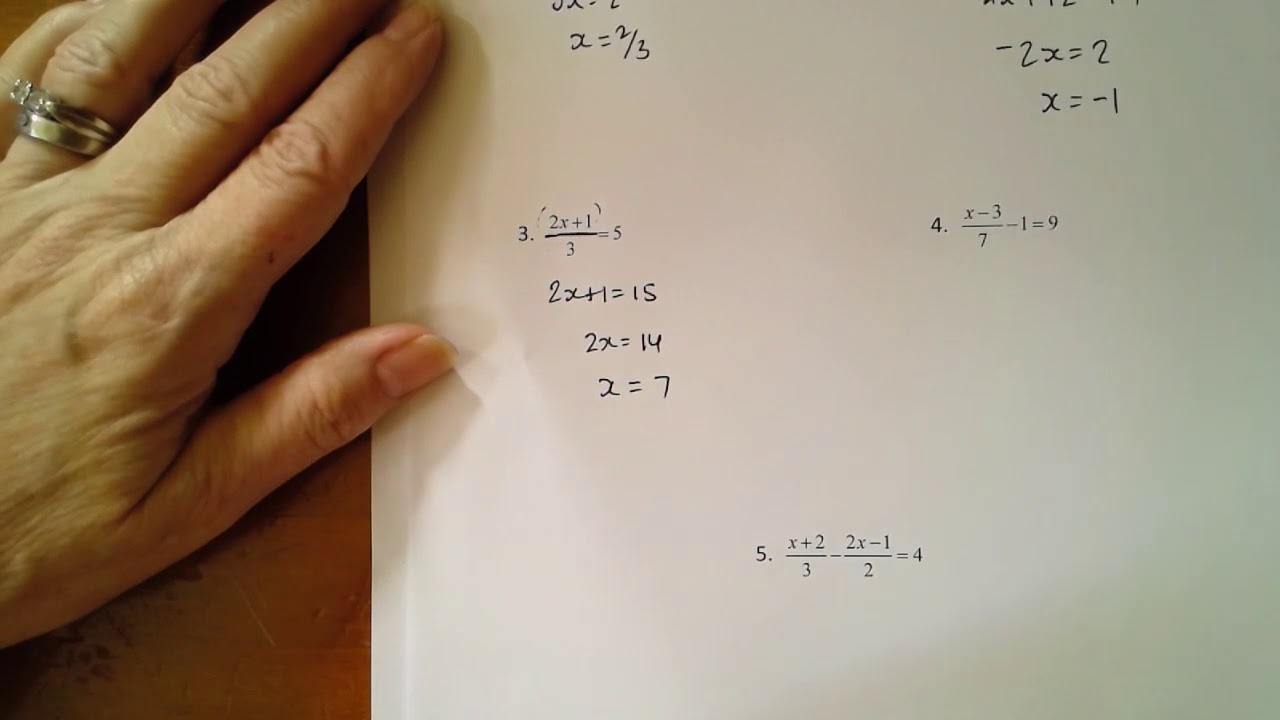 x = 2/3
-2x = 2
x = -1
3. (2x+1)/3 = 5
2x+1 = 15
2x = 14
x = 7
4. x−3/7 −1 = 9
5. x+2/3 − 2x−1/2 = 4